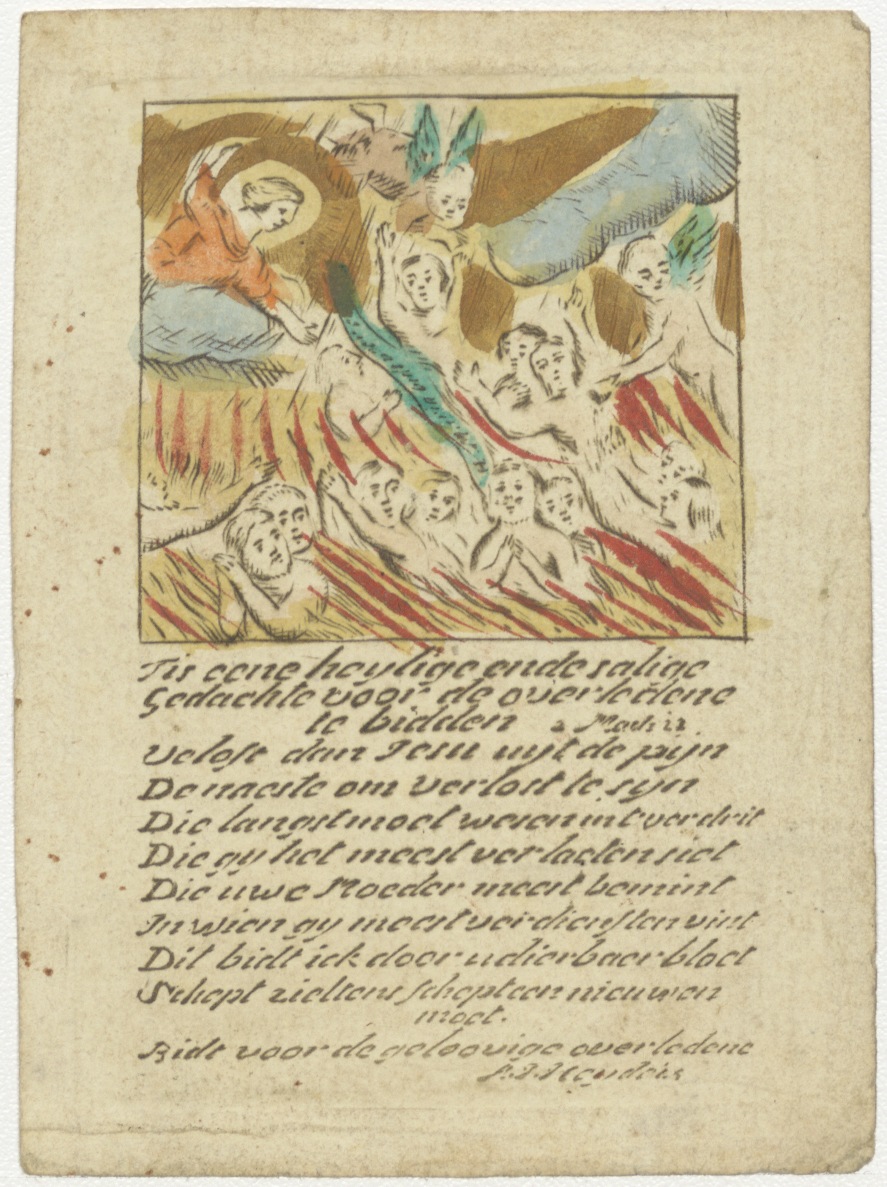 Tis eene heylige ende salige
Gedachte voor de overledene
te bidden 2 Mach 12
Velost dan Jesu uijt de pijn
De naeste om verlost te syn
Die langst moet wesen int verdrit
Die gy het meest verlaeten siet
Die uwe Moeder meest bemint
In wien gy meest verdiensten vint
Dit bidt ick door u dierbaer bloet
Schept zieltens schept een nieuwen
moet.
Bidt voor de geloovige overledene